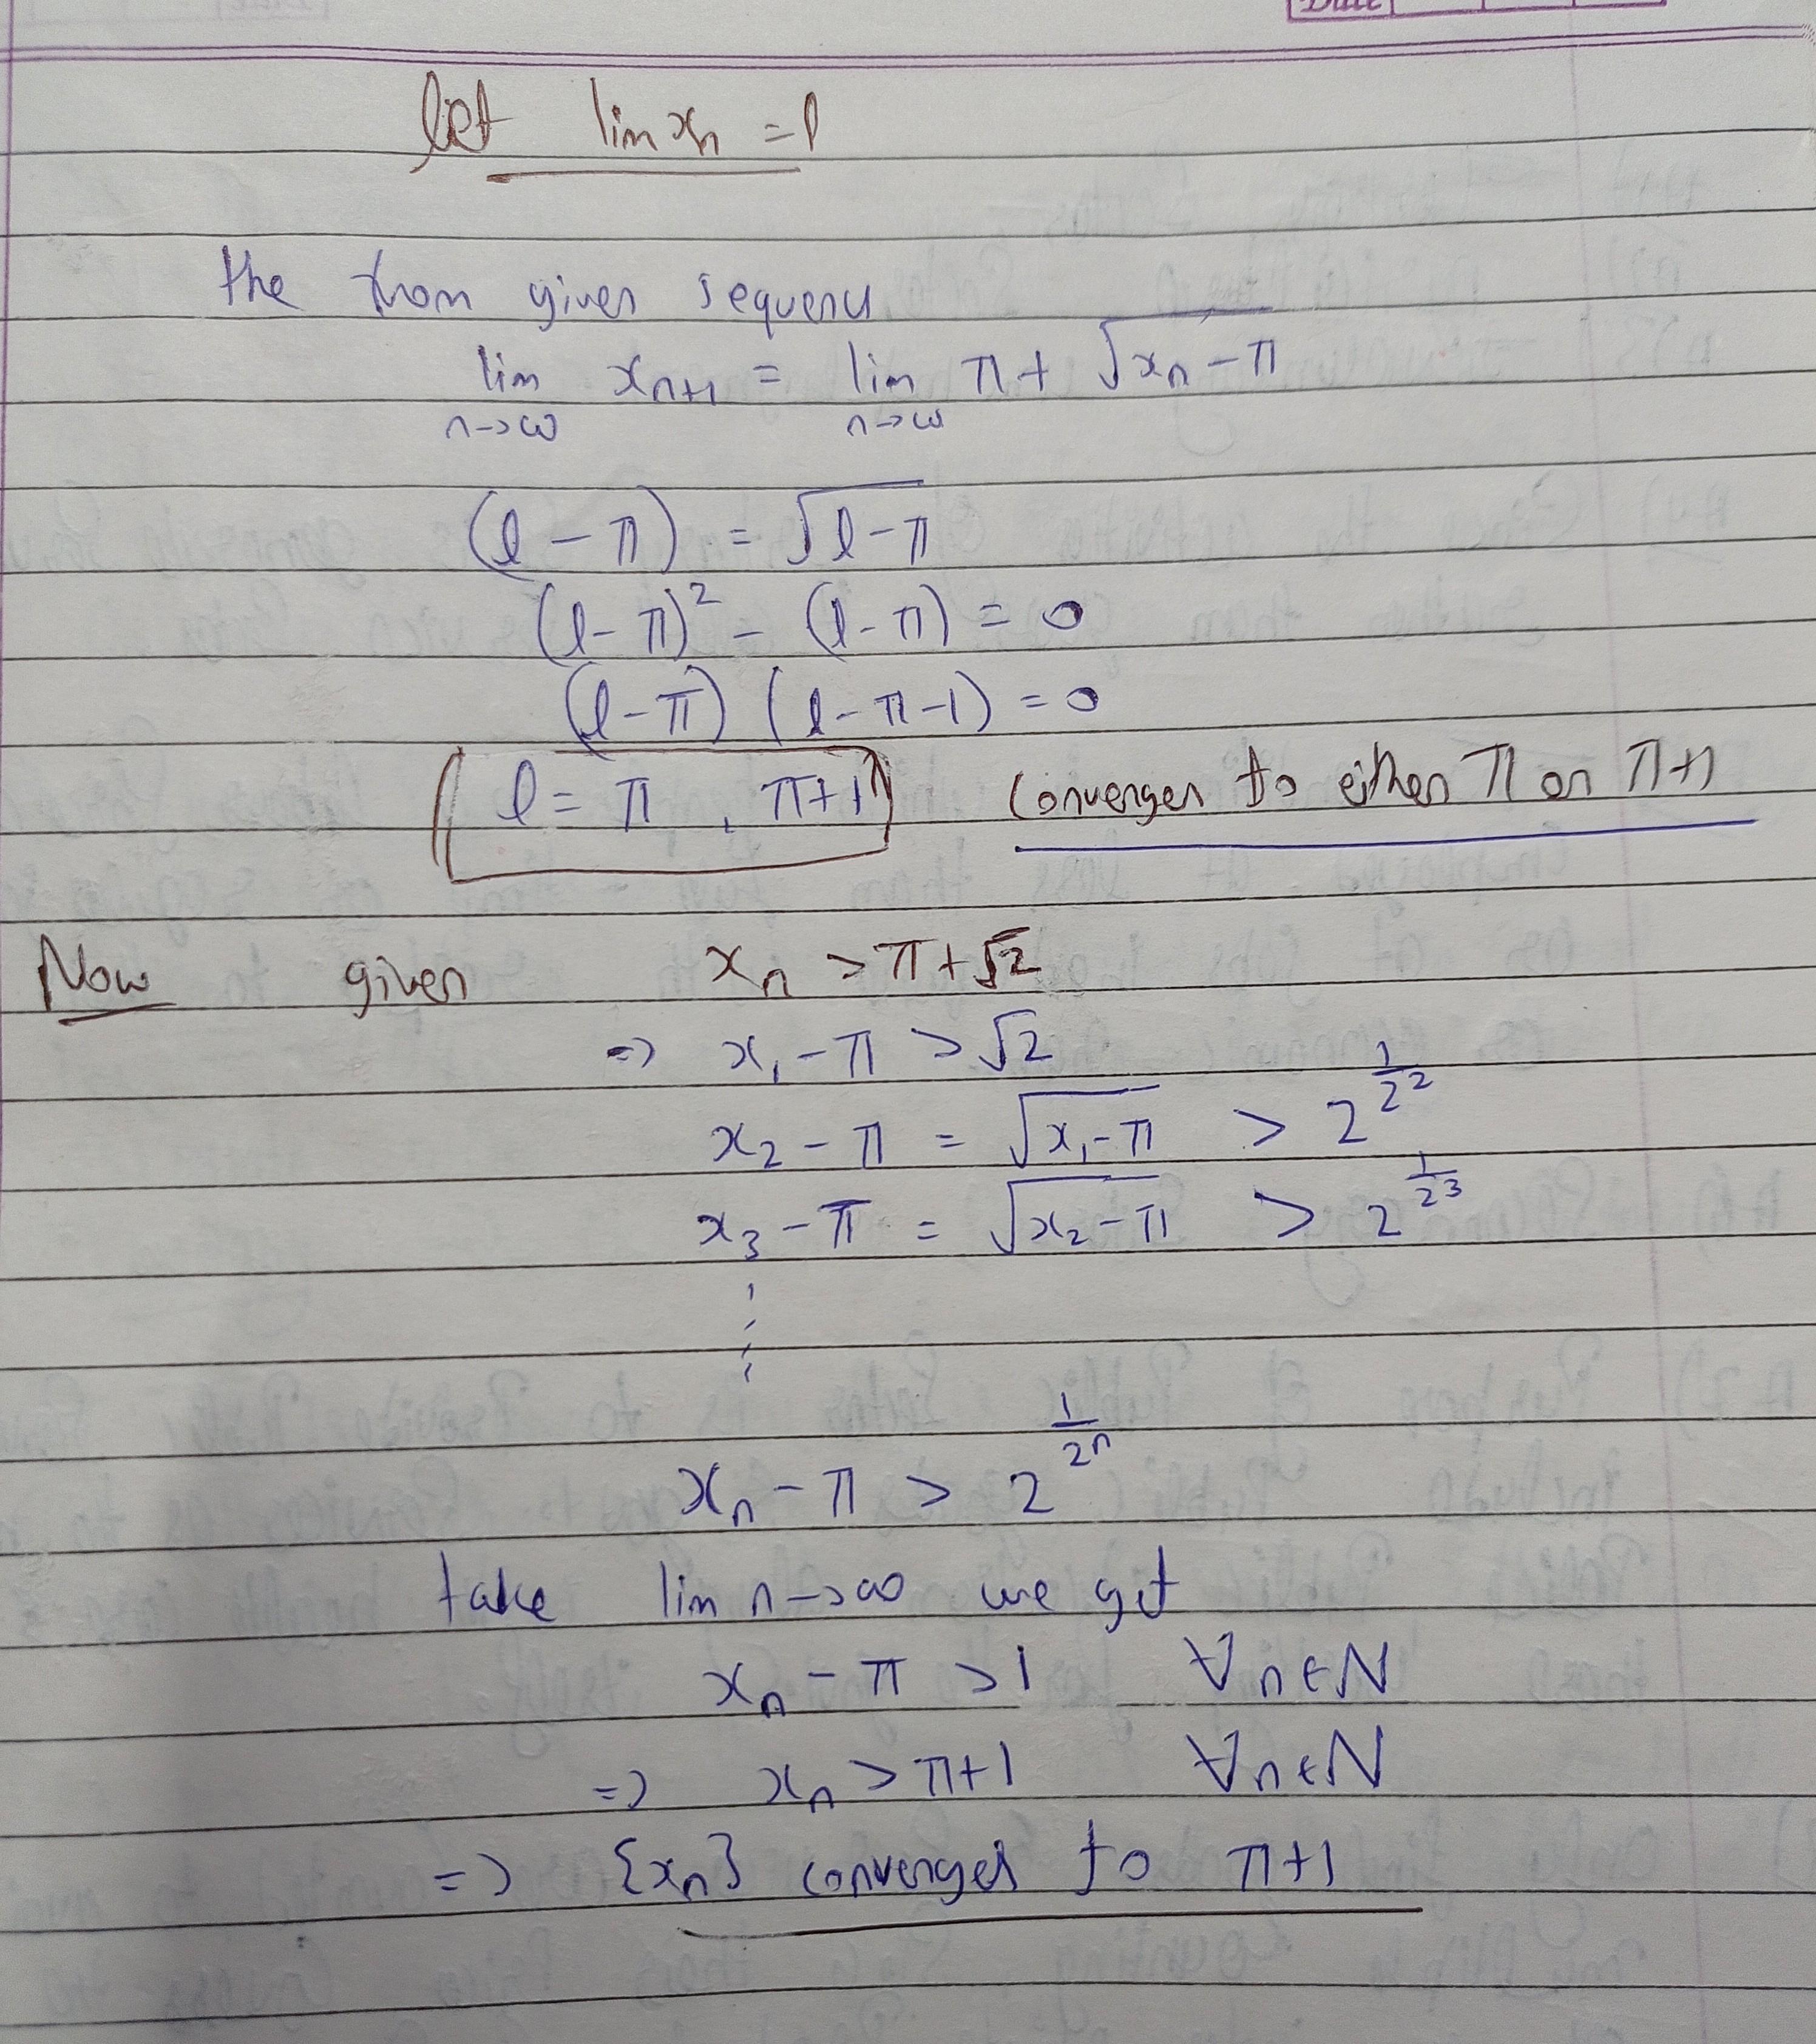 Date
let lim xn = l
the from given sequence
lim n→∞ xn+1 = lim n→∞ π + √(xn - π)
(l - π) = √(l - π)
(l - π)² - (l - π) = 0
(l - π) (l - π - 1) = 0
l = π , π+1 converges to either π or π+1
Now given xn > π + √2
=> x1 - π > √2
x2 - π = √(x1 - π) > 2^(1/2²)
x3 - π = √(x2 - π) > 2^(1/2³)
xn - π > 2^(1/2ⁿ)
take lim n→∞ we get
xn - π > 1 ∀ n ∈ N
=> xn > π+1 ∀ n ∈ N
=> {xn} converges to π+1